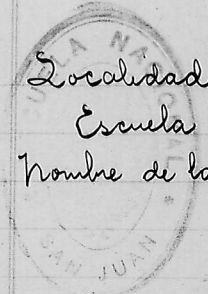 Localidad
Escuela
Nombre de la
ESCUELA NACIONAL
SAN JUAN